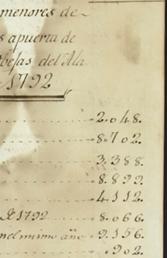 menores de
s apuerta de
bejas del Ala
1792
2.048.
8.702.
3.388.
8.899.
4.112.
1792 8.066.
nel mismo año 9.156.
.902.